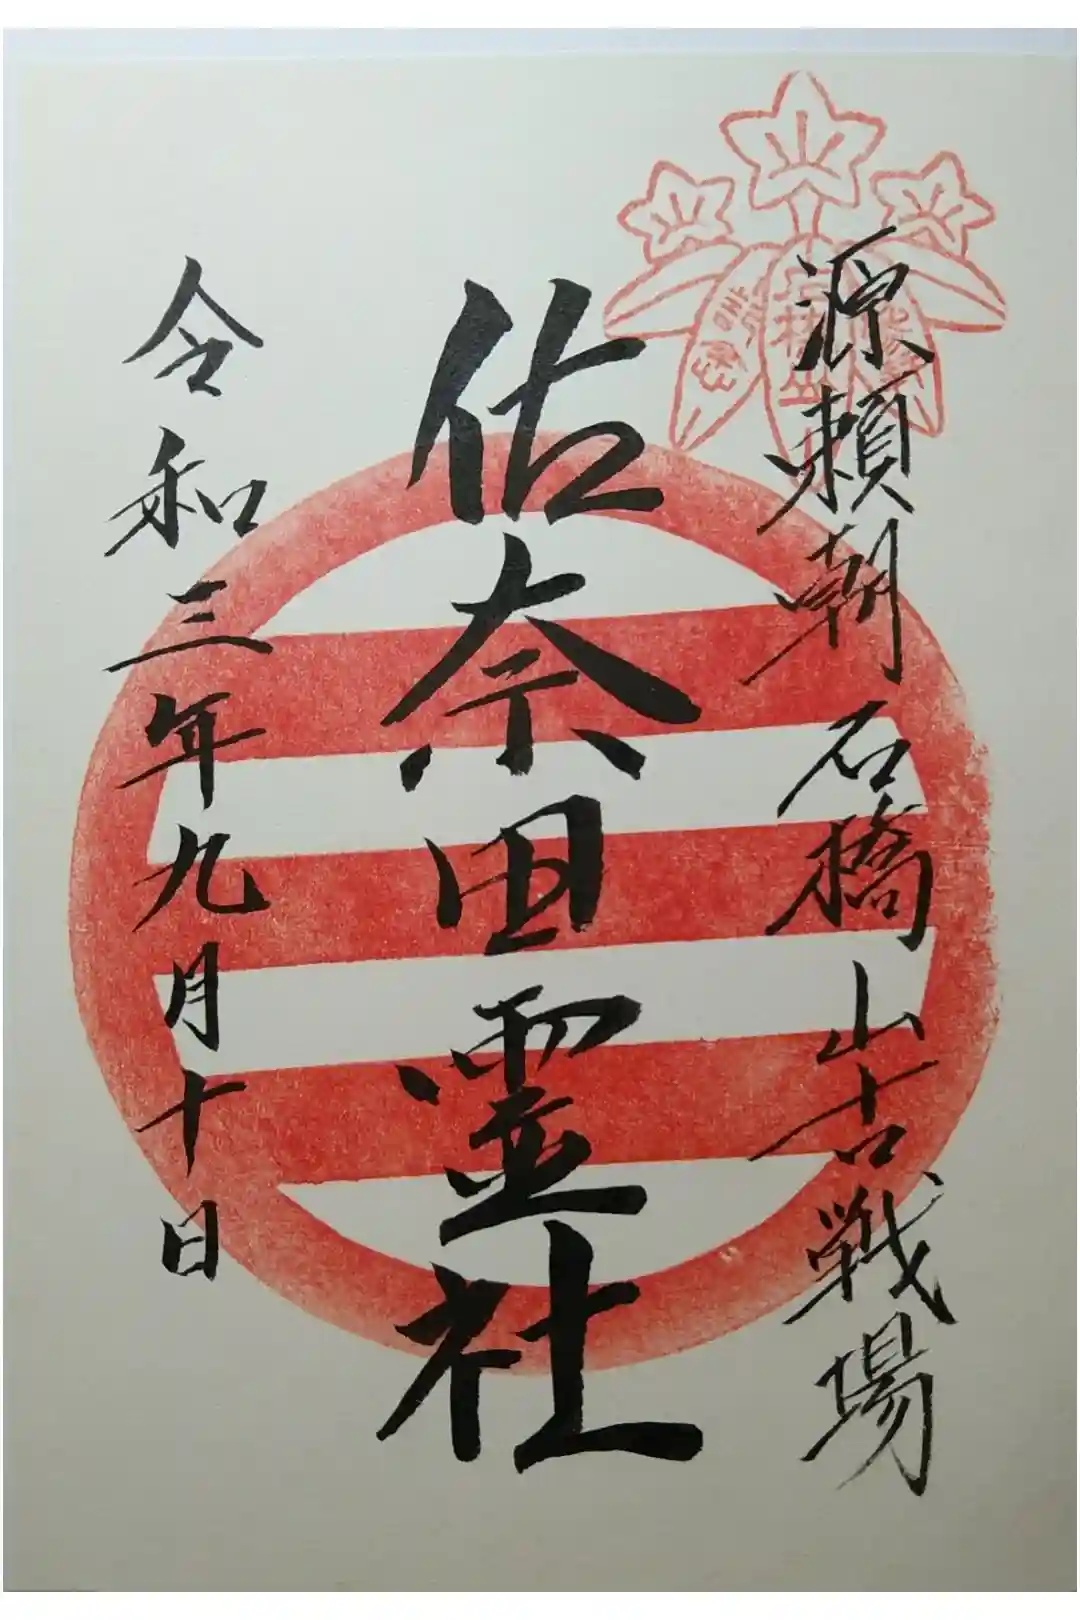 源頼朝石橋山古戦場
佐奈田霊社
令和三年九月十日